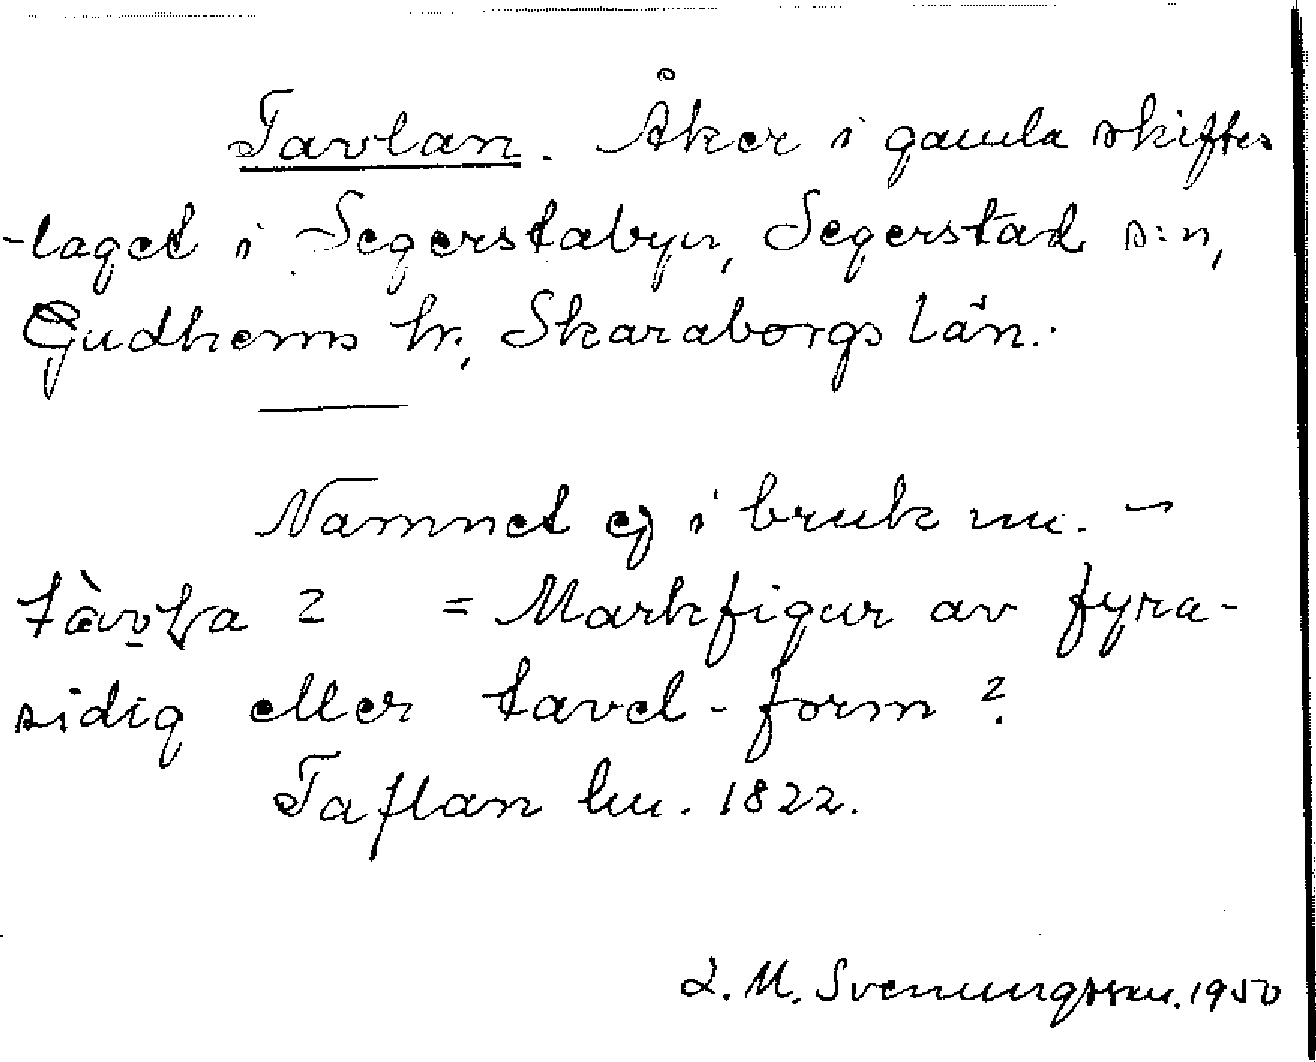 Tavlan. Åker i gamla skiftes
-laget i Segerstabyn, Segerstad s:n,
Gudhems hr, Skaraborgs län.
Namnet ej i bruk nu. -
2 = Markfigur av fyra-
sidig eller tavel-form?
Taflan 1822.
L. M. Svenungsson. 1950